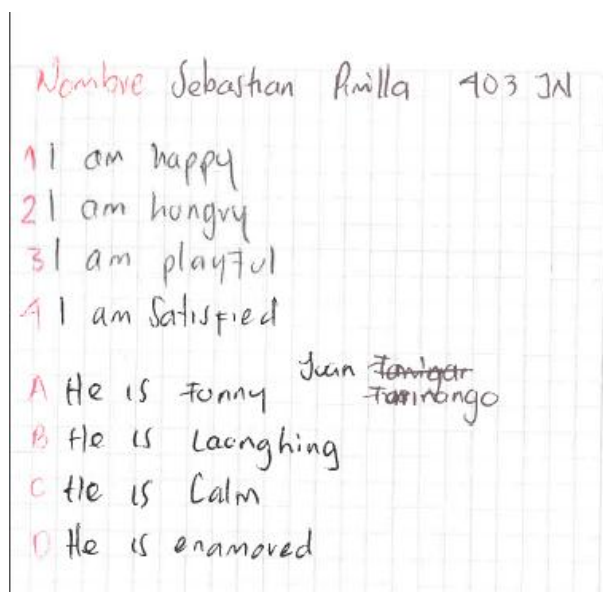 Nombre Sebastian Pinilla 403 JN
1 I am happy
2 I am hungry
3 I am playful
4 I am Satisfied
Juan
A He is Funny
B He is Laonghing
C He is Calm
D He is enamored